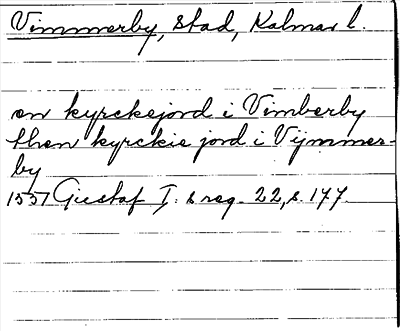 Vimmerby, stad, Kalmar l.
en kyrckejord i Vimberby
then kyrckie jord i Vijmmer-
by
1557 Gustaf I. s reg. 22, s. 177